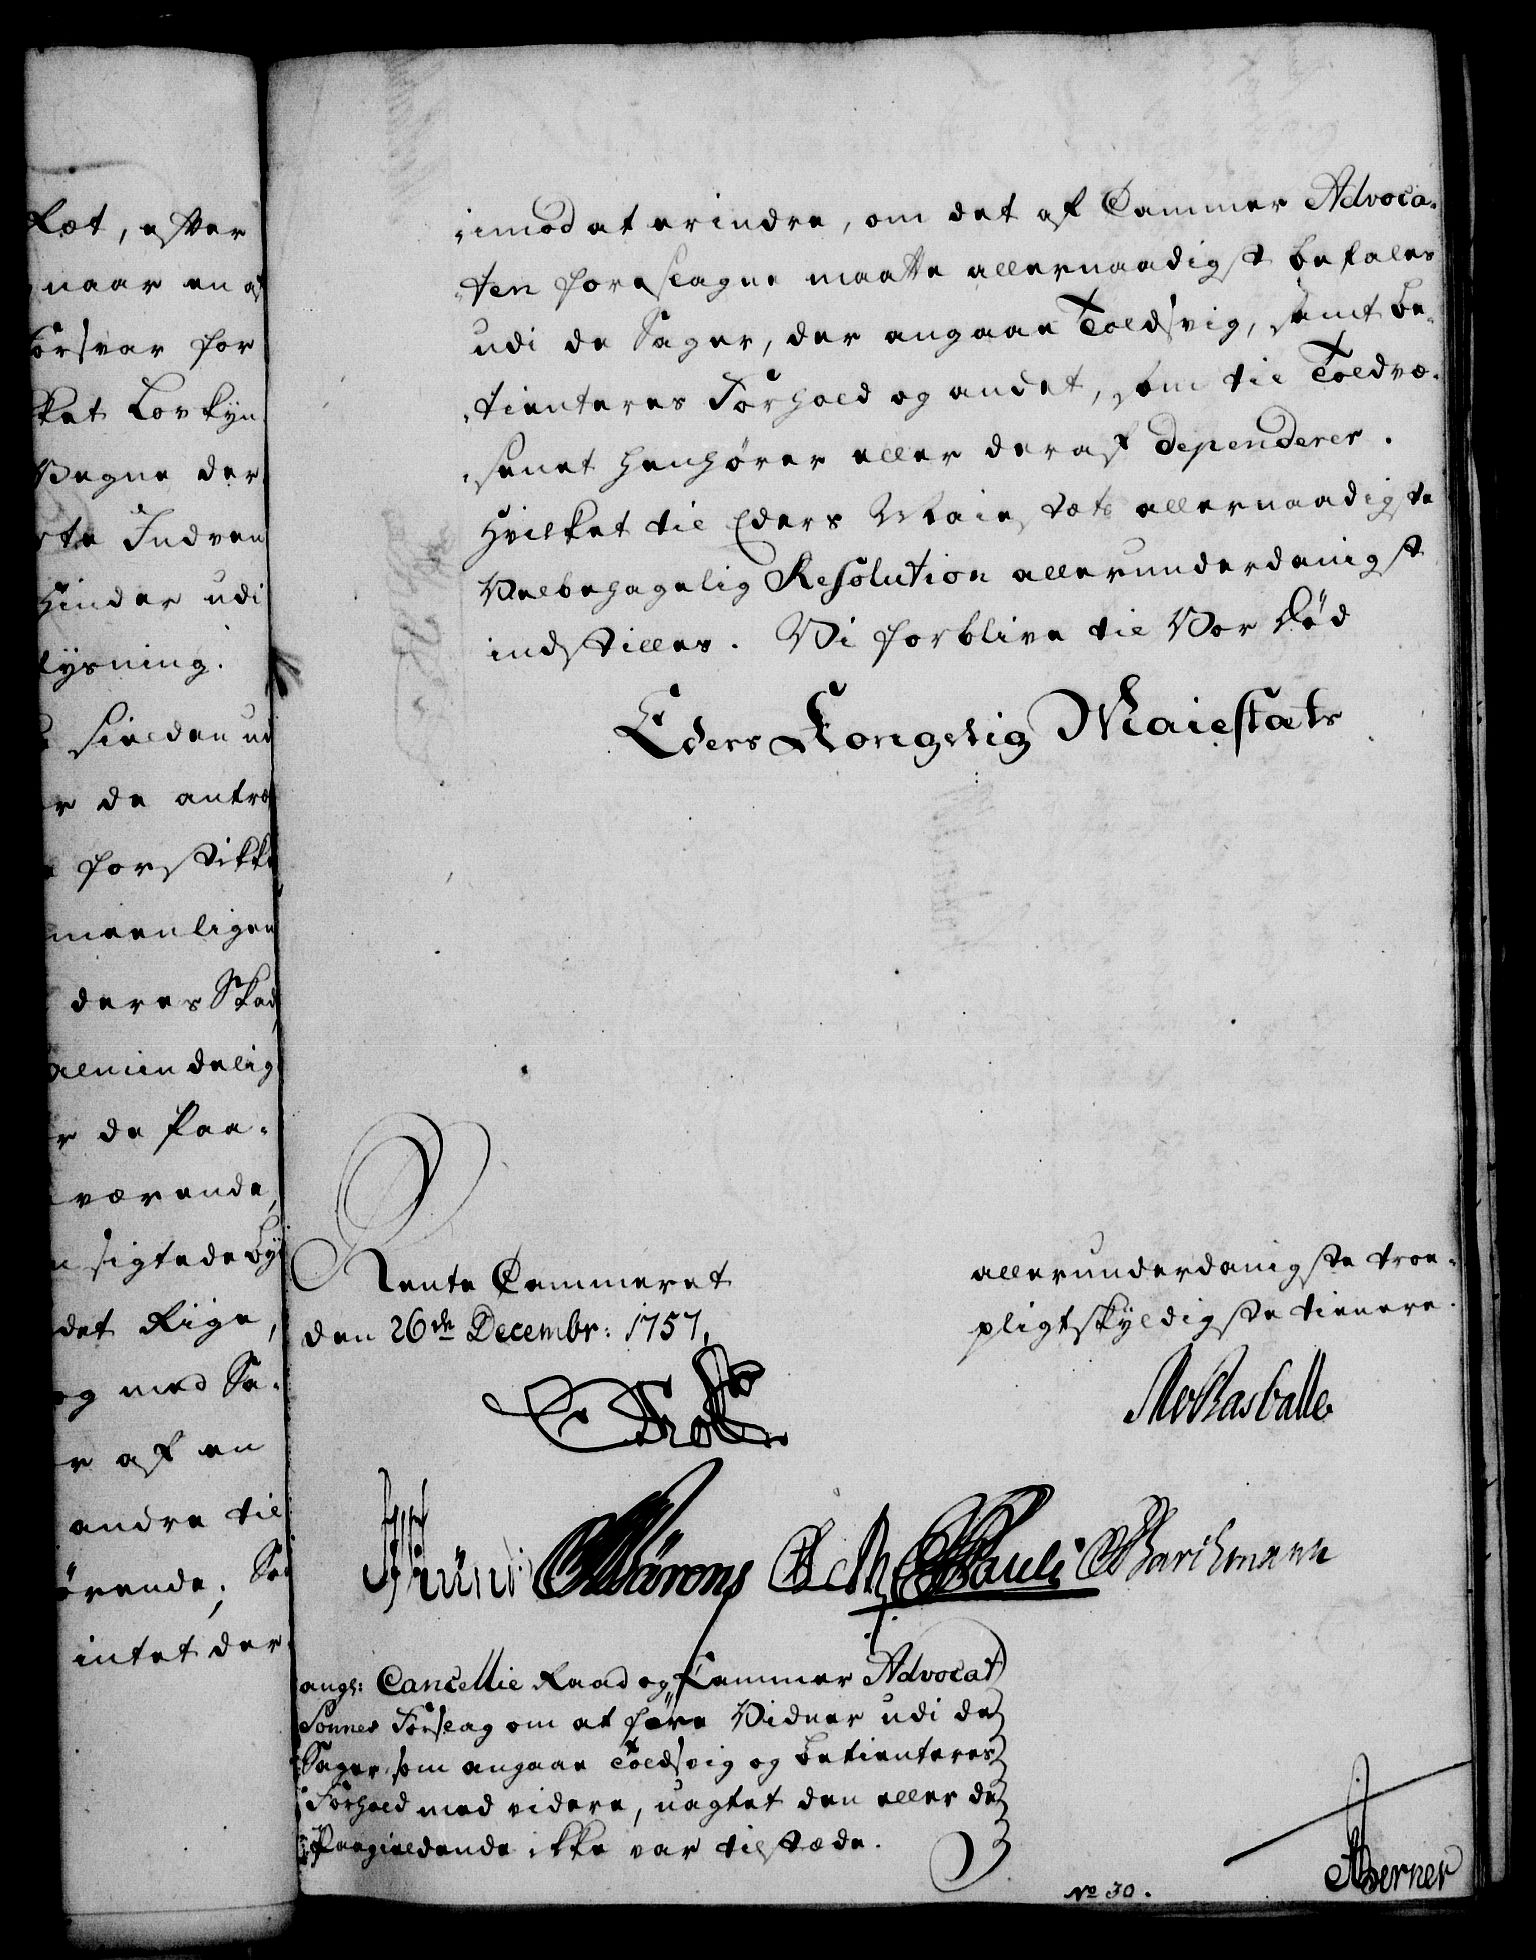 Ræt, efter
naar en af
Forsvar for
sket Lovkyn
Vegne der
te Indven
Hinder udi
lysning.
sielden ud
r de antræ
forstikke
meenligen
deres Skad
almindelig
r de Paa-
værende,
sigtede By
det Riige,
og med Sa-
r af en
andre til
ørende; Sa
intet der
imod at erindre, om det af Cammer Advoca-
ten foreslagne maatte allernaadigst befales
udi de Sager, der angaae Toldsvig, samt Be-
tienteres Forhold og andet, som til Toldvæ-
senet henhører eller deraf dependerer.
Hvilket til Eders Maiestæts allernaadigste
Velbehagelig Resolution allerunderdanigst
indstilles. Vi forblive til Vor Død
Eders Kongelig Maiestæts
Rente Cammeret
den 26de Decembr: 1757.
allerunderdanigste troe-
pligtskyldigste tienere.
Rasballe
Pauli Barchmann
angl: Cancellie Raad og Kammer Advocat
Sonnes Forslag om at føre Vidner udi de
Sager som angaae Toldsvig og Betienteres
Forhold med videre, uagtet den eller de
Paagieldende ikke var tilstæde.
No 30.
Berner